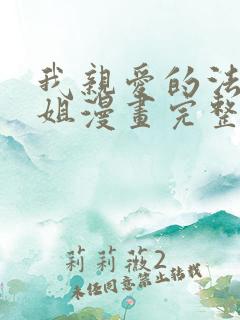 我親愛的法
姐漫畫完整
莉莉薇2
未经同意禁止转载